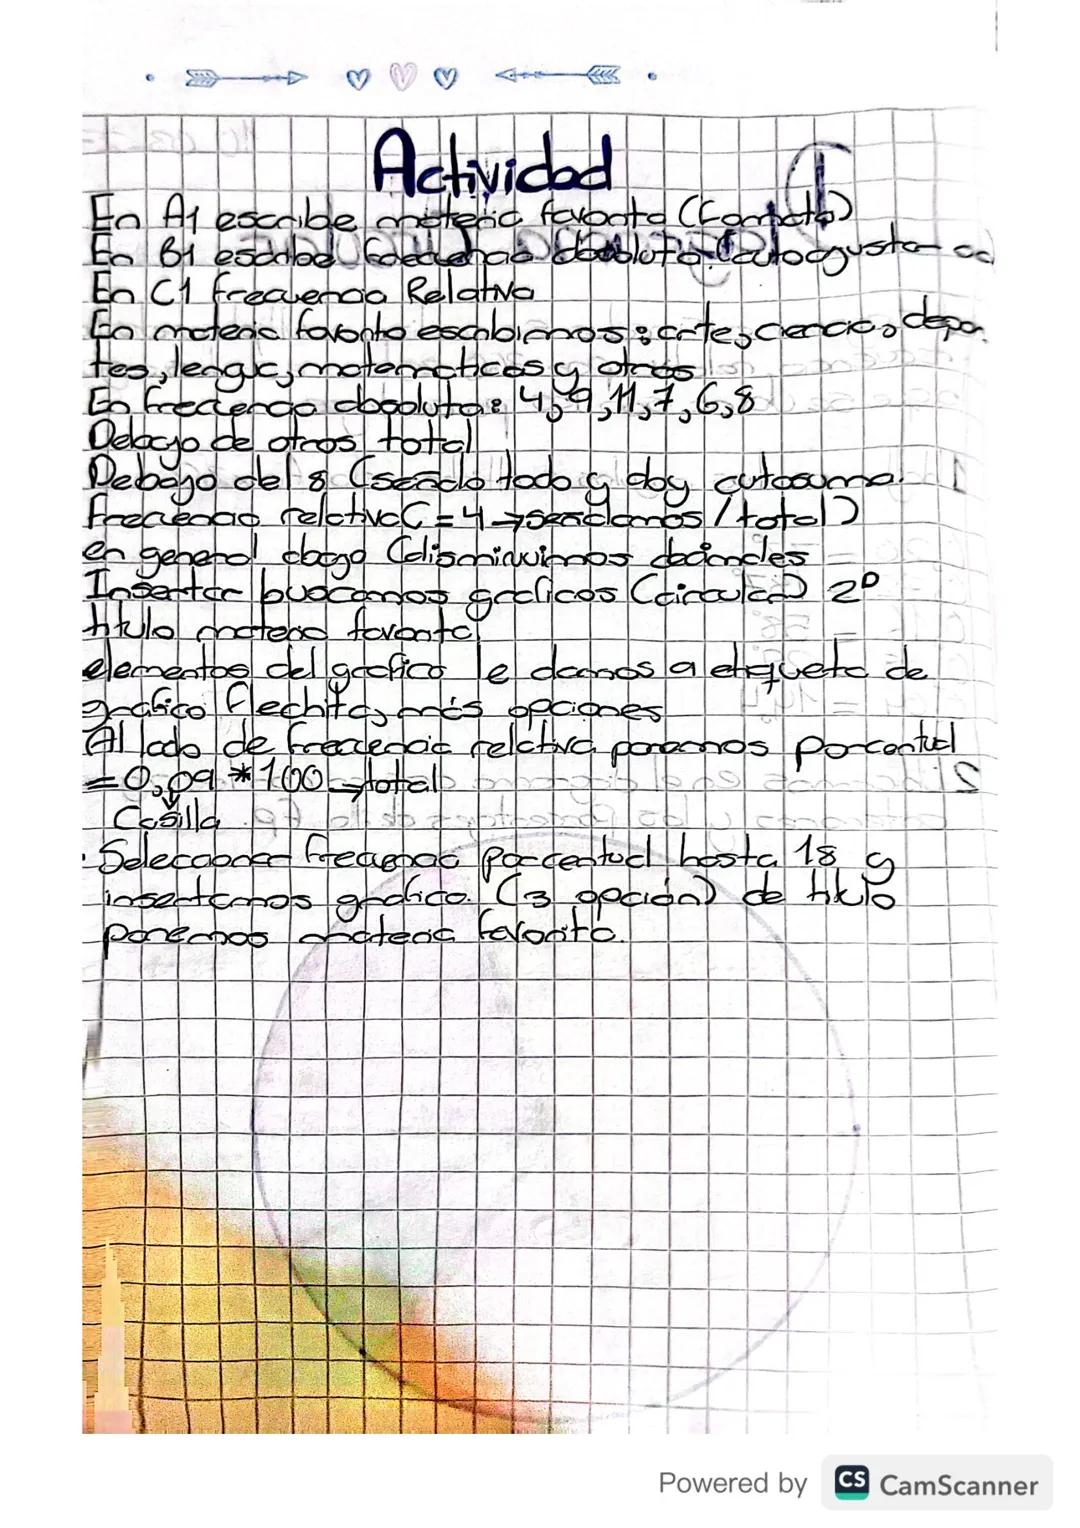 Actividad
En A1 escribe materia favorita (Formato)
En B1 escribe frecuencia absoluta (autoagustar ca
En C1 frecuencia Relativa
En materia favorita escribimos: arte, ciencias, depor-
tes, lengua, matematicas y otras
En frecuencia absoluta: 4, 9, 11, 7, 6, 8
Debajo de otros total
Debajo del 8 (señalo todo y doy autosuma.
frecuencia relativa C = 4 → señalamos / total)
en general abajo (disminuimos decimales
Insertar buscamos graficos (circular) 2º
titulo materia favorita
elementos del grafico le damos a etiqueta de
grafico flechita, más opciones
Al lado de frecuencia relativa ponemos porcentual
= 0,09 * 100 → total
Casilla
· Seleccionar frecuencia porcentual hasta 18 y
insertamos gráfico. (3 opción) de titulo
ponemos materia favorita.
Powered by CS CamScanner